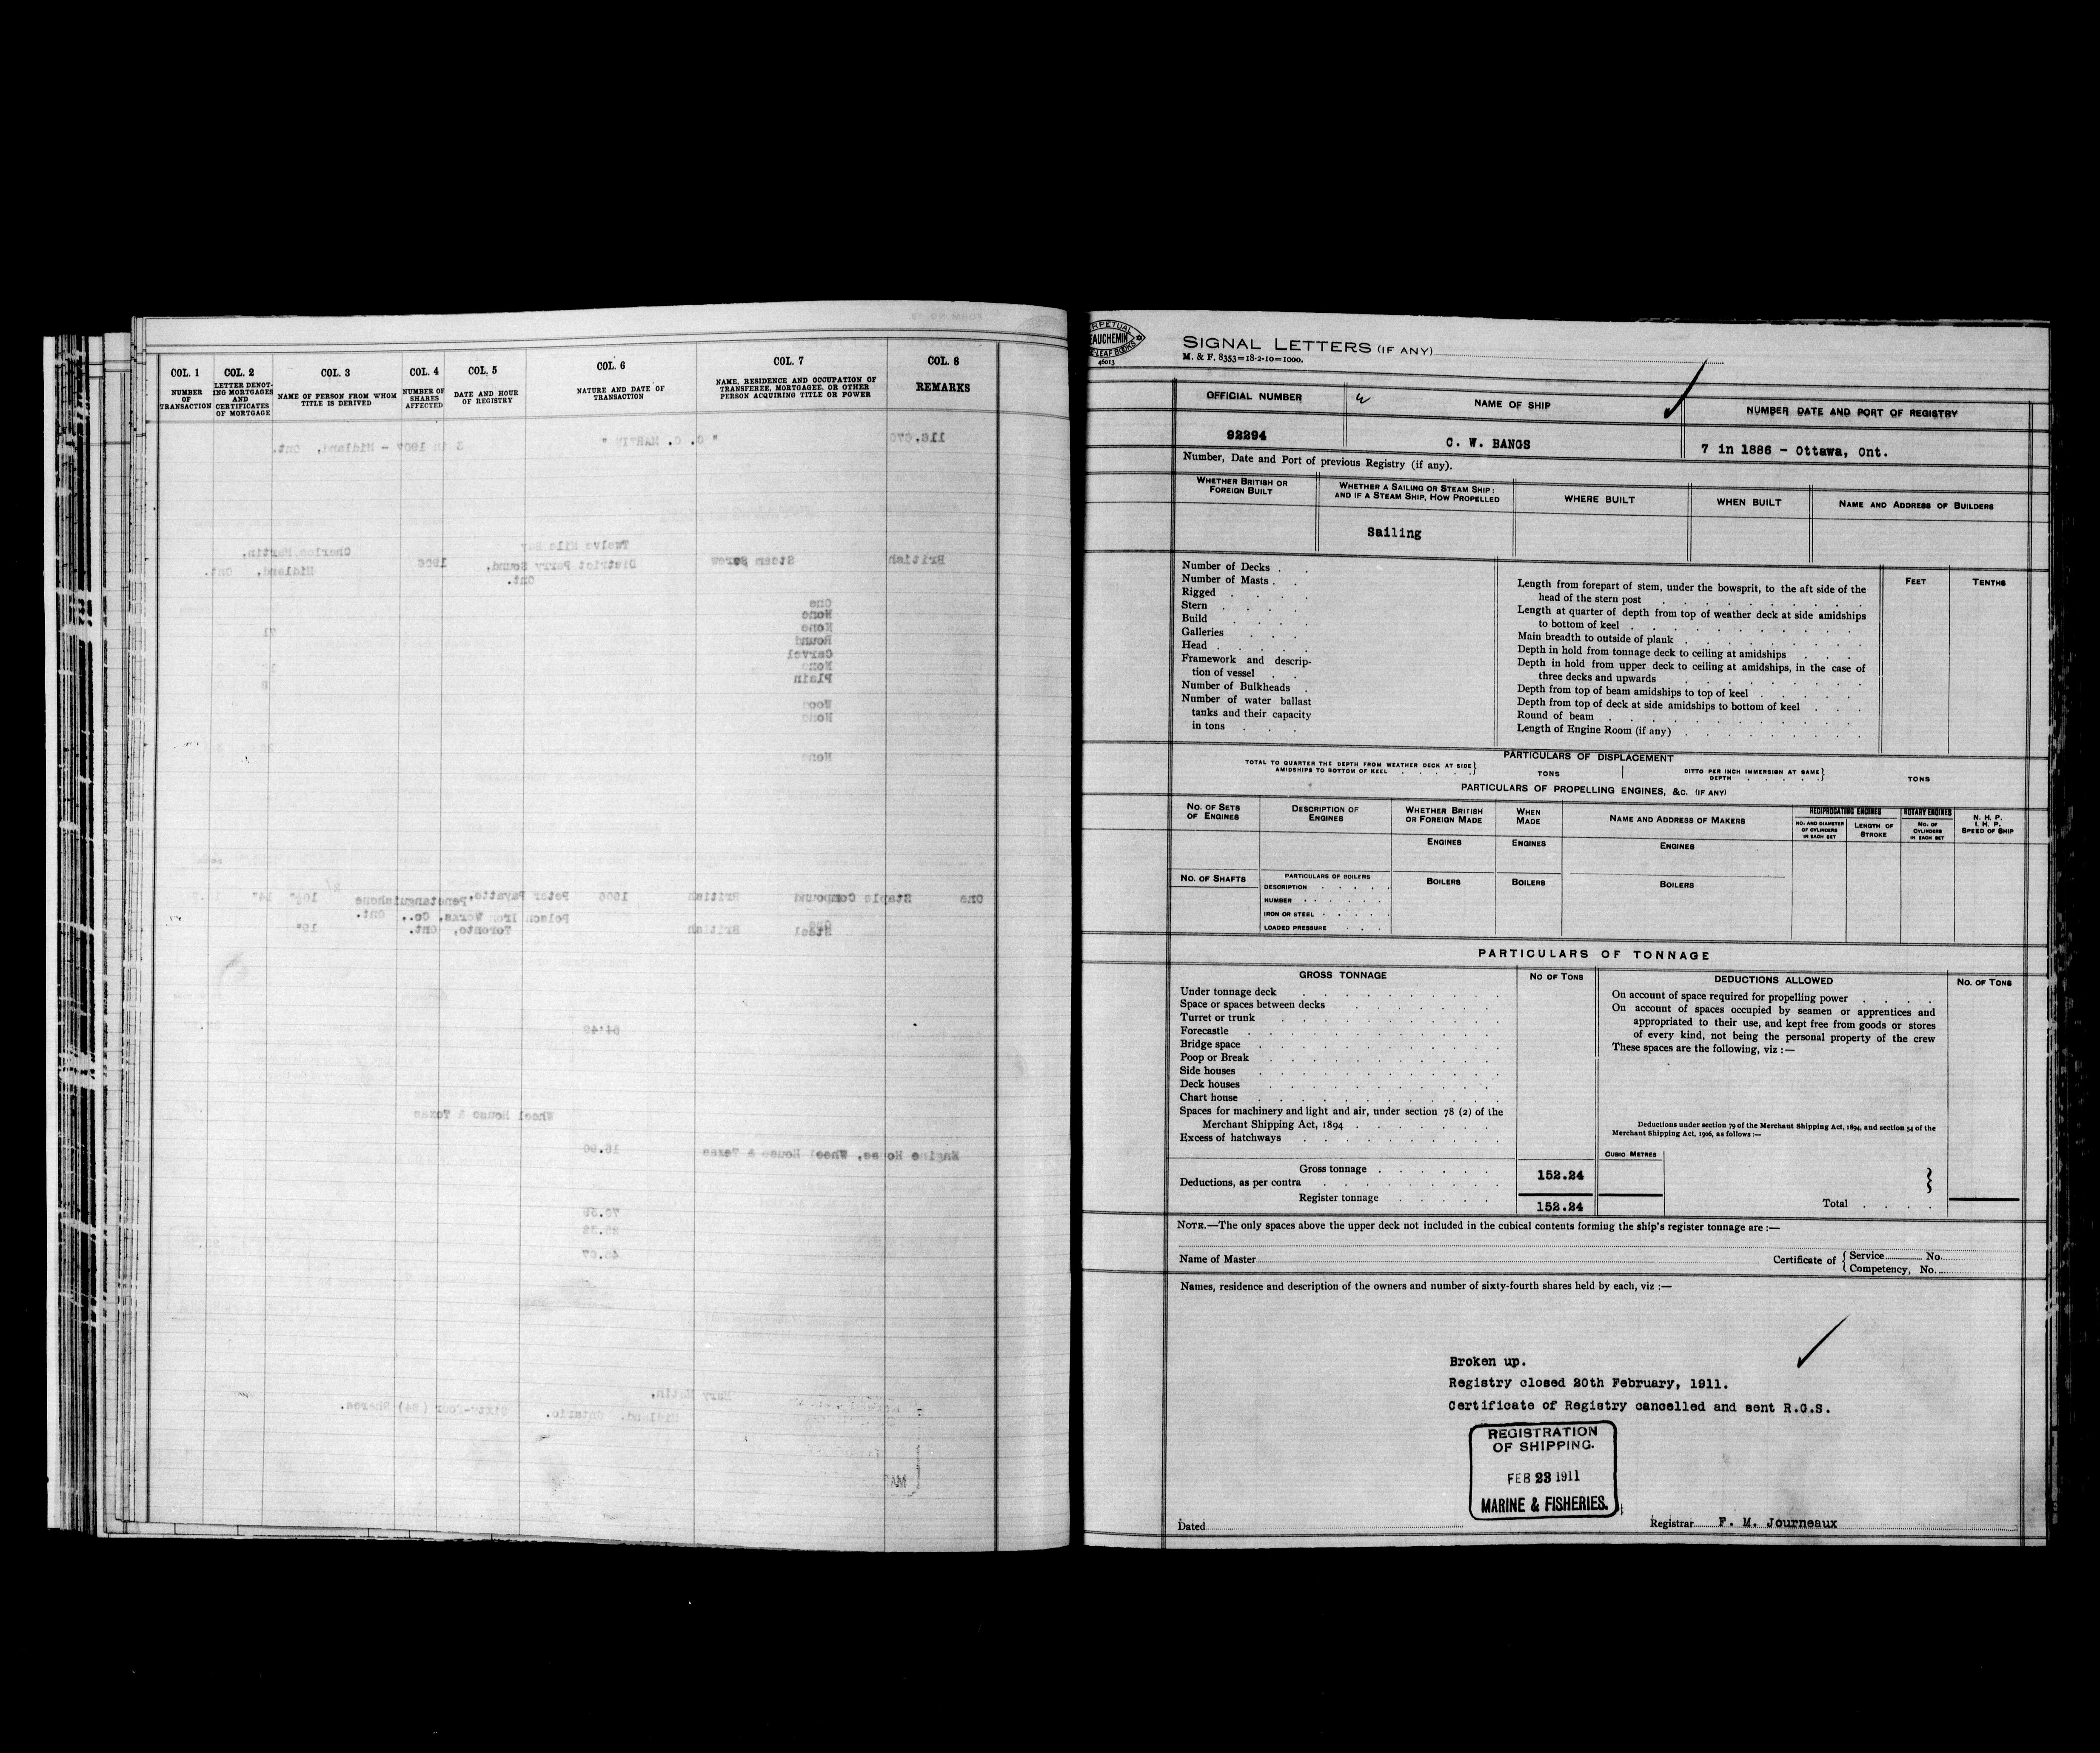 COL. 1
NUMBER
OF
TRANSACTION
COL. 2
LETTER DENOT-
ING MORTGAGES
AND
CERTIFICATES
OF MORTGAGE
COL. 3
NAME OF PERSON FROM WHOM
TITLE IS DERIVED
COL. 4
NUMBER OF
SHARES
AFFECTED
COL. 5
DATE AND HOUR
OF REGISTRY
COL. 6
NATURE AND DATE OF
TRANSACTION
COL. 7
NAME, RESIDENCE AND OCCUPATION OF
TRANSFEREE, MORTGAGEE, OR OTHER
PERSON ACQUIRING TITLE OR POWER
COL. 8
REMARKS
SIGNAL LETTERS (IF ANY)
M. & F. 8353=18-2-10=1000.
OFFICIAL NUMBER
NAME OF SHIP
NUMBER, DATE AND PORT OF REGISTRY
92294
C. W. BANGS
7 in 1886 - Ottawa, Ont.
Number, Date and Port of previous Registry (if any).
WHETHER BRITISH OR
FOREIGN BUILT
WHETHER A SAILING OR STEAM SHIP:
AND IF A STEAM SHIP, HOW PROPELLED
WHERE BUILT
WHEN BUILT
NAME AND ADDRESS OF BUILDERS
Sailing
Number of Decks . .
Number of Masts . .
Rigged . . . .
Stern . . . .
Build . . .
Galleries . . .
Head . . . .
Framework and descrip-
tion of vessel . .
Number of Bulkheads .
Number of water ballast
tanks and their capacity
in tons . . .
FEET
TENTHS
Length from forepart of stem, under the bowsprit, to the aft side of the
head of the stern post
Length at quarter of depth from top of weather deck at side amidships
to bottom of keel
Main breadth to outside of plank
Depth in hold from tonnage deck to ceiling at amidships
Depth in hold from upper deck to ceiling at amidships, in the case of
three decks and upwards
Depth from top of beam amidships to top of keel
Depth from top of deck at side amidships to bottom of keel
Round of beam
Length of Engine Room (if any)
PARTICULARS OF DISPLACEMENT
TOTAL TO QUARTER THE DEPTH FROM WEATHER DECK AT SIDE}
AMIDSHIPS TO BOTTOM OF KEEL
TONS
DITTO PER INCH IMMERSION AT SAME}
DEPTH
TONS
PARTICULARS OF PROPELLING ENGINES, &C. (IF ANY)
NO. OF SETS
OF ENGINES
DESCRIPTION OF
ENGINES
WHETHER BRITISH
OR FOREIGN MADE
WHEN
MADE
NAME AND ADDRESS OF MAKERS
RECIPROCATING ENGINES
ROTARY ENGINES
NO. AND DIAMETER
OF CYLINDERS
IN EACH SET
LENGTH OF
STROKE
NO. OF
CYLINDERS
IN EACH SET
N. H. P.
I. H. P.
SPEED OF SHIP
ENGINES
ENGINES
ENGINES
NO. OF SHAFTS
PARTICULARS OF BOILERS
DESCRIPTION
NUMBER
IRON OR STEEL
LOADED PRESSURE
BOILERS
BOILERS
BOILERS
PARTICULARS OF TONNAGE
GROSS TONNAGE
NO OF TONS
DEDUCTIONS ALLOWED
NO. OF TONS
Under tonnage deck
Space or spaces between decks
Turret or trunk
Forecastle
Bridge space
Poop or Break
Side houses
Deck houses
Chart house
Spaces for machinery and light and air, under section 78 (2) of the
Merchant Shipping Act, 1894
Excess of hatchways
On account of space required for propelling power
On account of spaces occupied by seamen or apprentices and
appropriated to their use, and kept free from goods or stores
of every kind, not being the personal property of the crew
These spaces are the following, viz :—
Deductions under section 79 of the Merchant Shipping Act, 1894, and section 54 of the
Merchant Shipping Act, 1906, as follows :—
CUBIC METRES
Gross tonnage 152.24
Deductions, as per contra
Register tonnage 152.24
Total
NOTE.—The only spaces above the upper deck not included in the cubical contents forming the ship's register tonnage are :—
Name of Master
Certificate of { Service No.
Competency, No.
Names, residence and description of the owners and number of sixty-fourth shares held by each, viz :—
Broken up.
Registry closed 20th February, 1911.
Certificate of Registry cancelled and sent R.G.S.
REGISTRATION
OF SHIPPING.
FEB 23 1911
MARINE & FISHERIES.
Dated
Registrar F. M. Journeaux